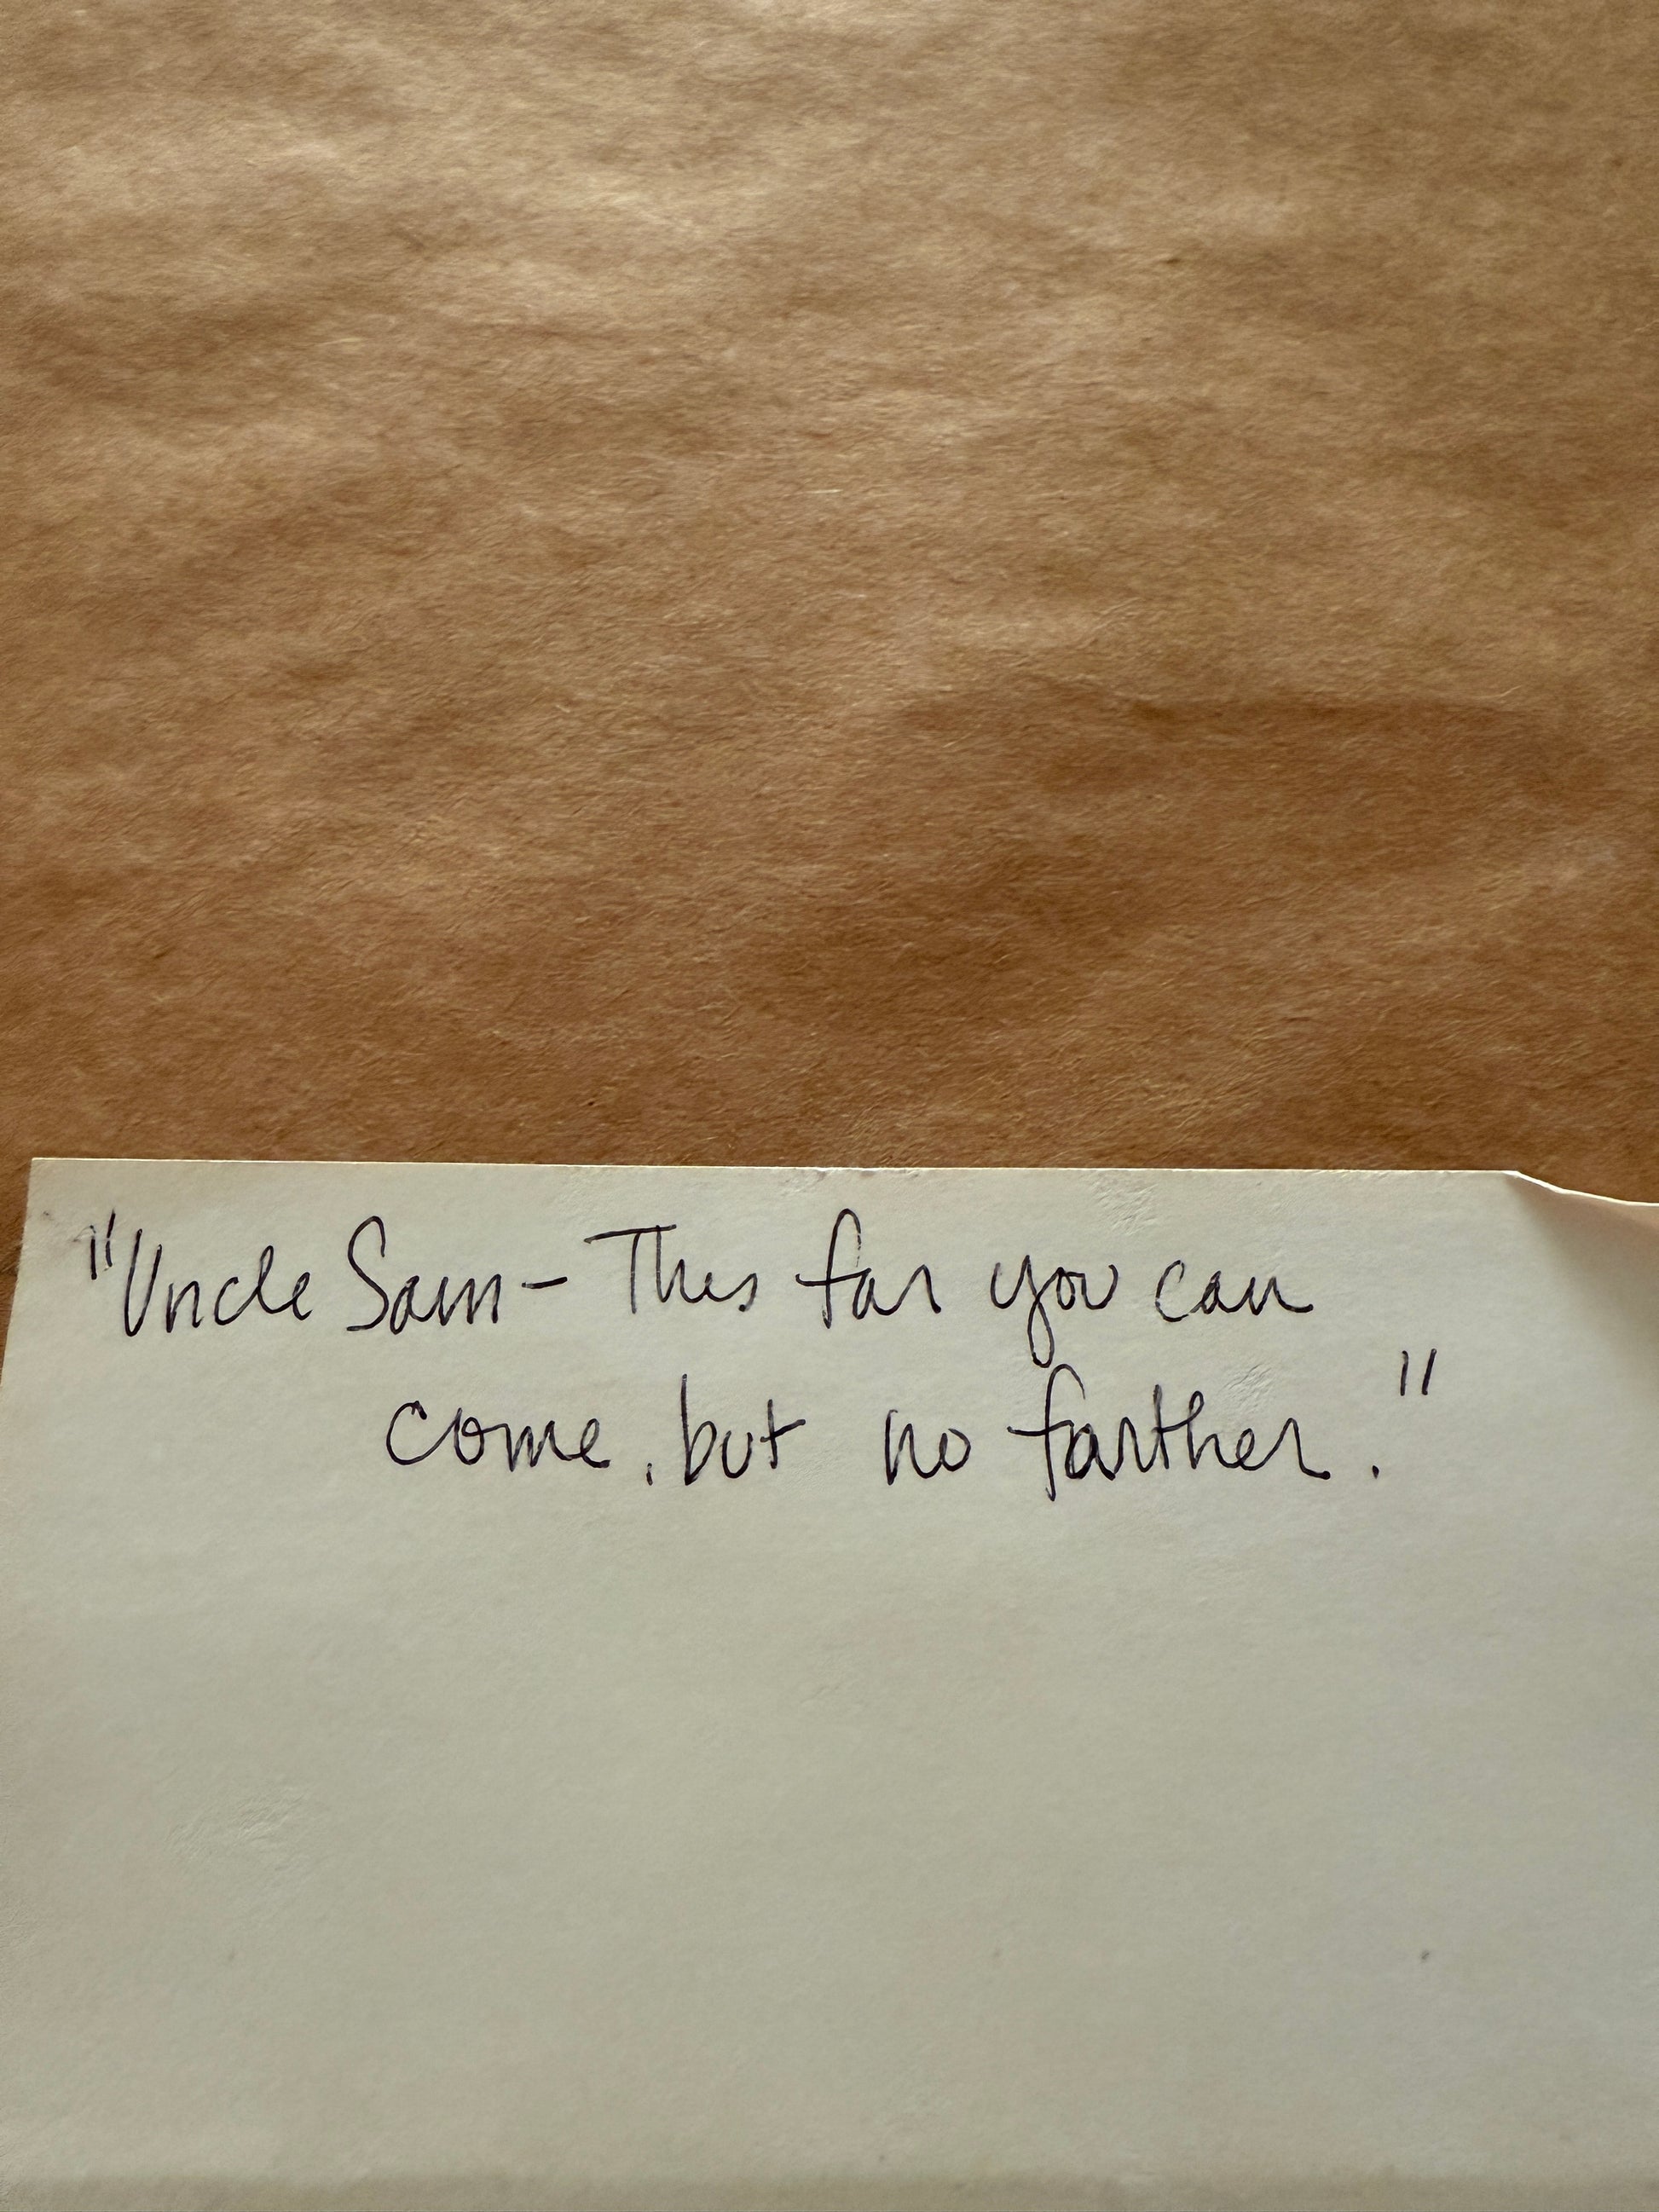 "Uncle Sam - This far you can
come, but no farther."